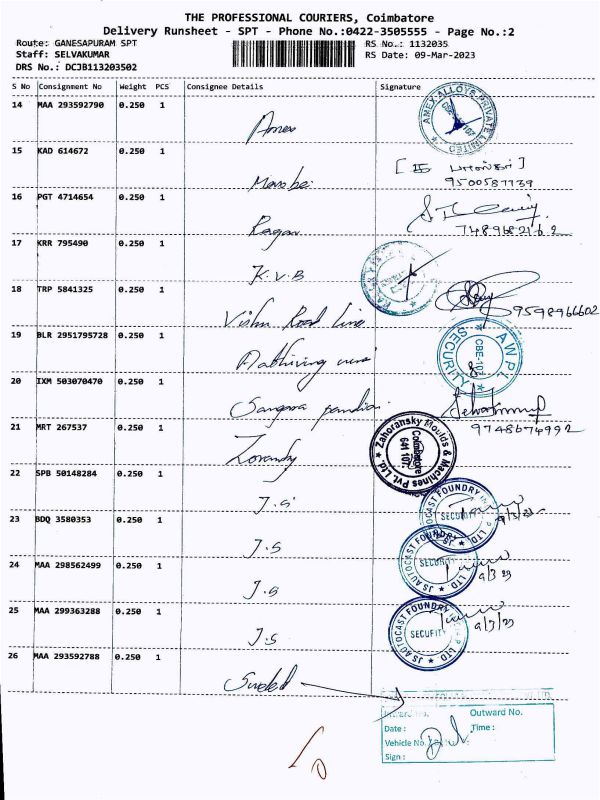 THE PROFESSIONAL COURIERS, Coimbatore
Delivery Runsheet - SPT - Phone No.:0422-3505555 - Page No.:2
Route: GANESAPURAM SPT
RS No.: 1132035
Staff: SELVAKUMAR
RS Date: 09-Mar-2023
DRS No.: DCJB113203502
S No Consignment No Weight PCS Consignee Details Signature
14 MAA 293592790 0.250 1 Amex
AMEX ALLOYS PRIVATE LIMITED
15 KAD 614672 0.250 1
9500587739
16 PGT 4714654 0.250 1 Ragav
7489682162
17 KRR 795490 0.250 1 K.V.B
18 TRP 5841325 0.250 1 Vishnu Road Lines
9598966602
19 BLR 2951795728 0.250 1
AWPL CBE-107 SECURITY
20 IXM 503070470 0.250 1
9748674992
21 MRT 267537 0.250 1
Zahoransky Moulds & Machines Pvt. Ltd.
Coimbatore
641 107.
22 SPB 50148284 0.250 1 J.S
JS AUTOCAST FOUNDRY
SECURITY
9/3/23
23 BDQ 3580353 0.250 1 J.S
JS AUTOCAST FOUNDRY LTD
SECURITY
9/3/23
24 MAA 298562499 0.250 1 J.S
25 MAA 299363288 0.250 1 J.S
JS AUTOCAST FOUNDRY LTD
SECURITY
9/3/23
26 MAA 293592788 0.250 1
Outward No.
Date :
Time :
Vehicle No.
Sign :